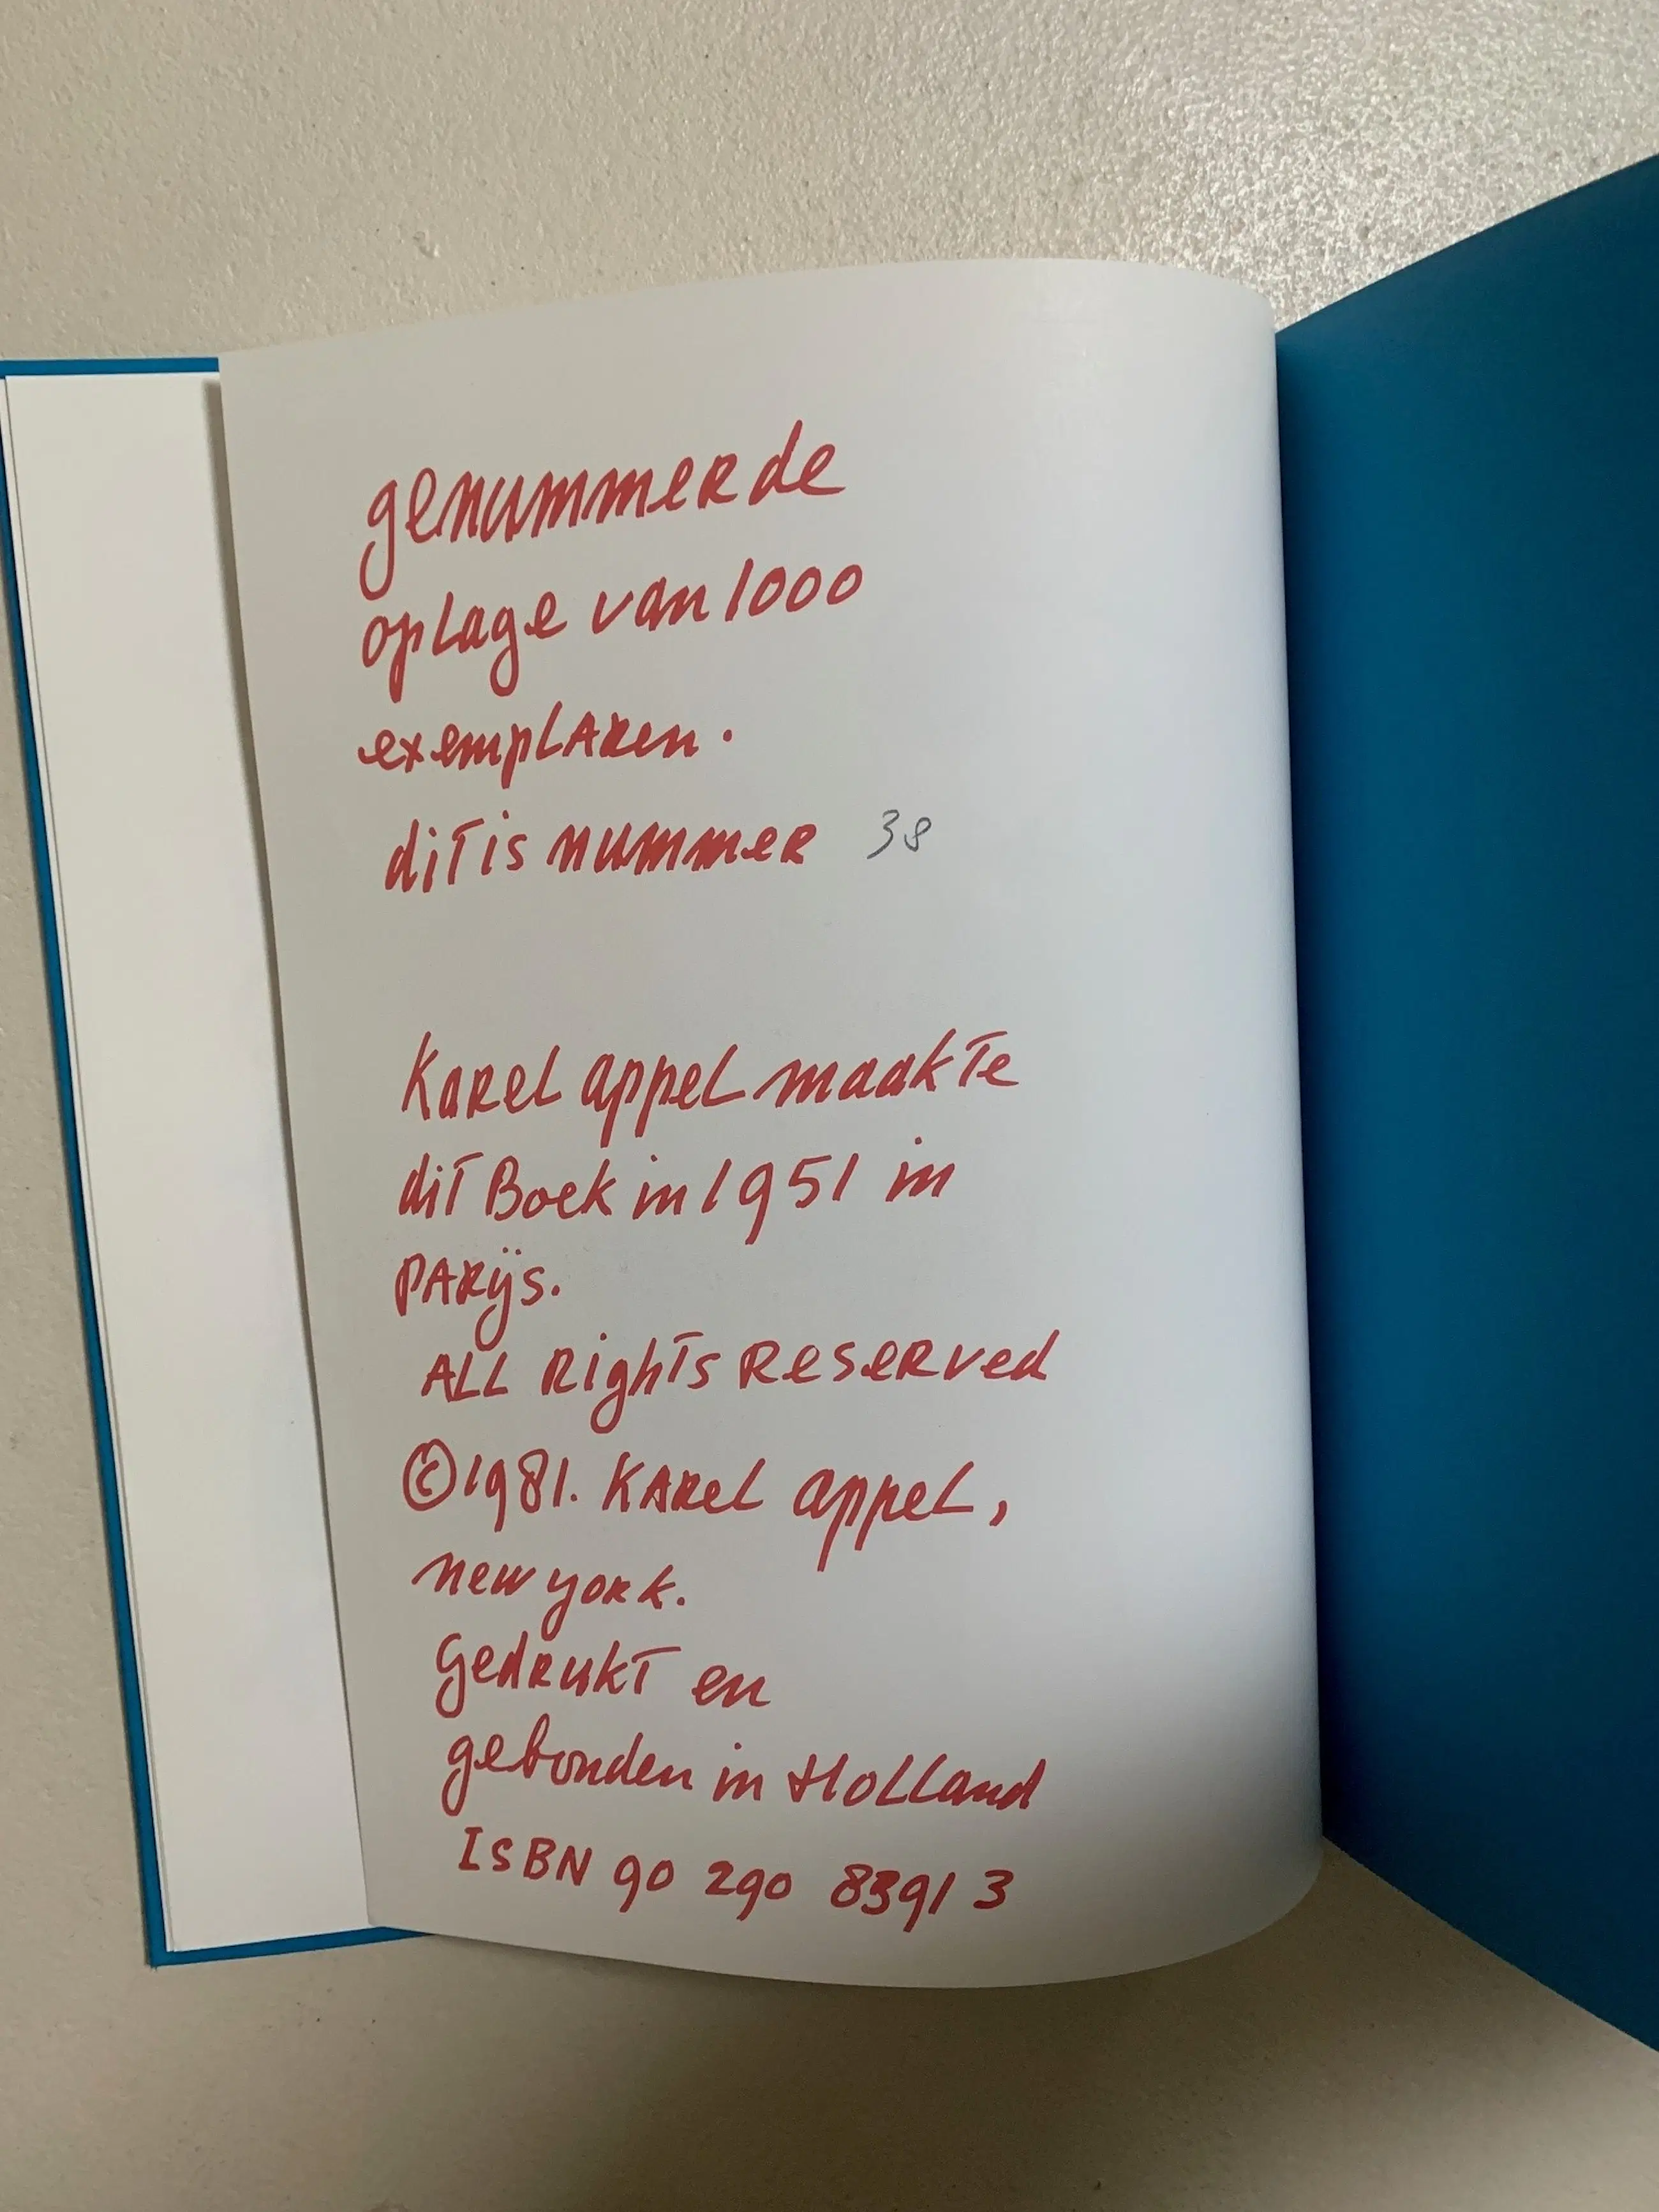 genummerde
oplage van 1000
exemplaren.
dit is nummer 38
Karel appel maakte
dit Boek in 1951 in
PARijs.
ALL Rights Reserved
©1981. KARel appel,
new york.
gedrukt en
gebonden in Holland
ISBN 90 290 8391 3